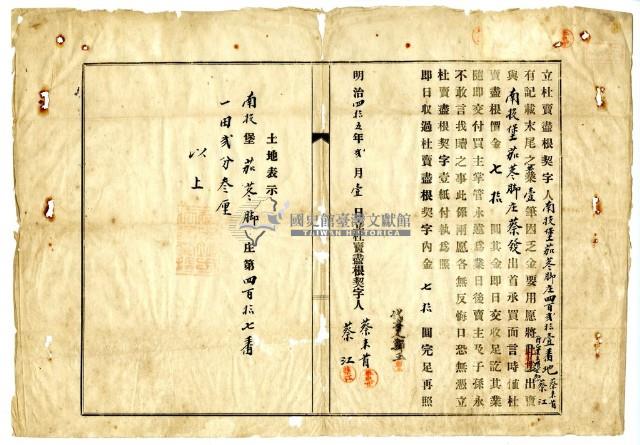 立杜賣盡根契字人南投堡茄苳脚庄四百弍拾壹番地蔡未首
蔡江
有記載末尾之業壹筆因乏金要用愿將此業出賣
與南投堡茄苳脚庄蔡發出首承買而言時值杜
賣盡根價金七拾圓其金即日交收足訖其業
隨即交付買主掌管永遠為業日後賣主及子孫永
不敢言我贖之事此係兩愿各無反悔口恐無憑立
杜賣盡根契字壹紙付執為照
即日収過杜賣盡根契字內金七拾圓完足再照
代筆人
明治四拾五年弍月壹日立杜賣盡根契字人
蔡未首
蔡江
土地表示
南投堡茄苳脚庄第四百拾七番
一田弍分叁厘
以上
國史館臺灣文獻館
TAIWAN HISTORICA